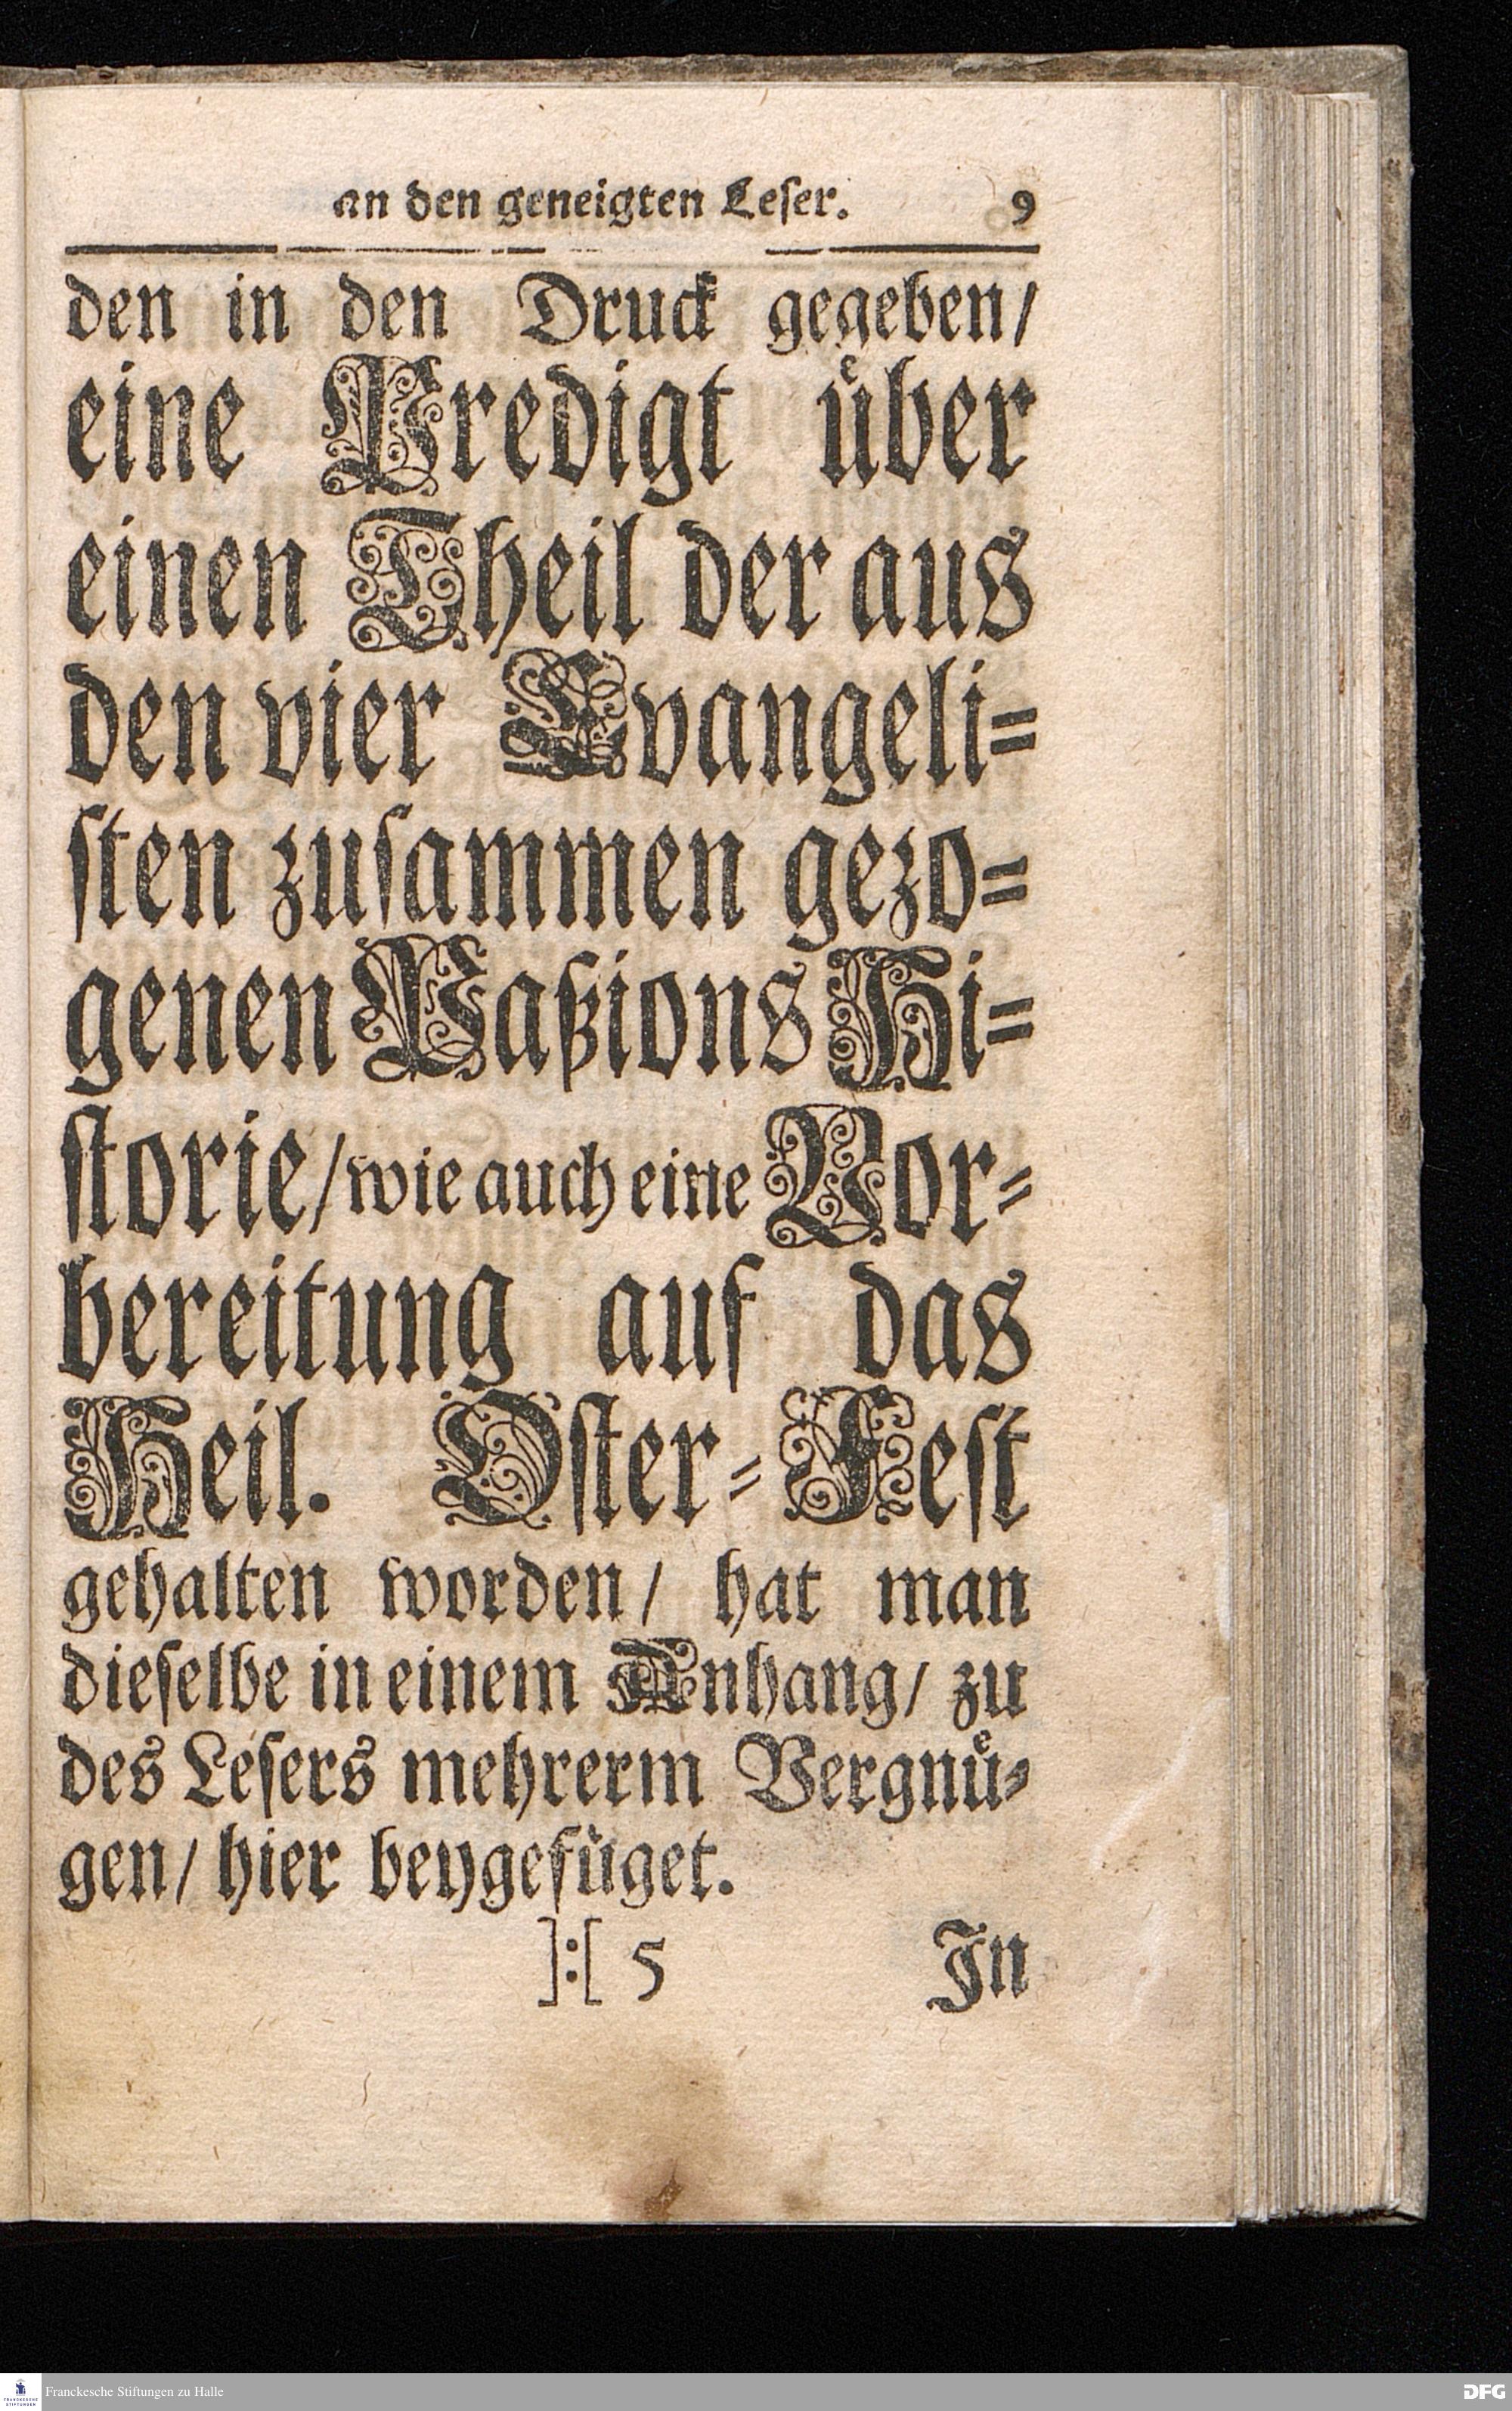 an den geneigten Leſer. 9
den in den Druck gegeben/
eine Predigt uͤber
einen Theil der aus
den vier Evangeli⸗
ſten zuſammen gezo⸗
genen Paßions Hi⸗
ſtorie/ wie auch eine Vor⸗
bereitung auf das
Heil. Oſter⸗Feſt
gehalten worden/ hat man
dieſelbe in einem Anhang/ zu
des Leſers mehrerm Vergnuͤ⸗
gen/ hier beygefuͤget.
]:[ 5 In
Franckesche Stiftungen zu Halle
DFG